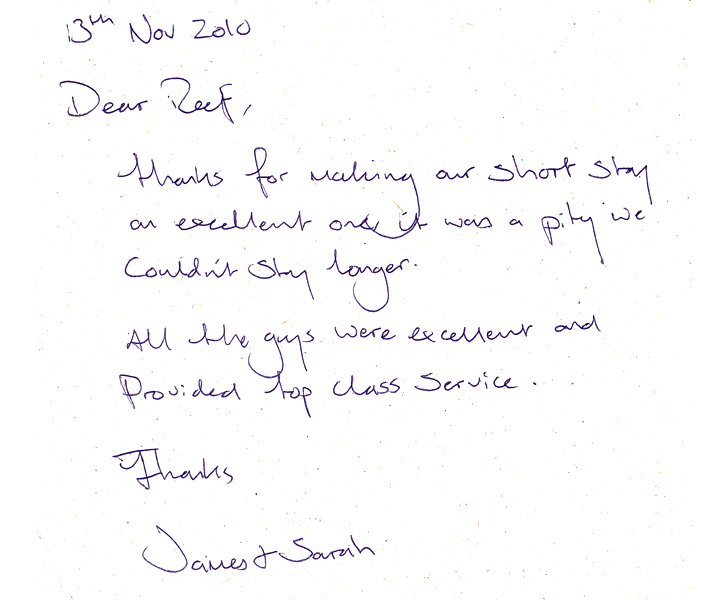 13th Nov 2010
Dear Reef,
Thanks for making our short stay
an excellent one, it was a pity we
Couldn't stay longer.
All the guys were excellent and
Provided top class service.
Thanks
James & Sarah